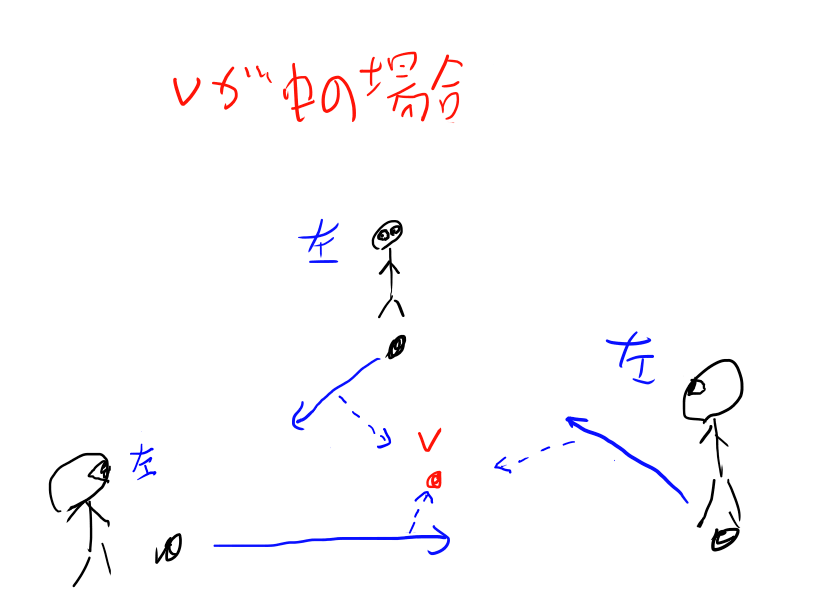 Vが中の場合
左
左
V
左